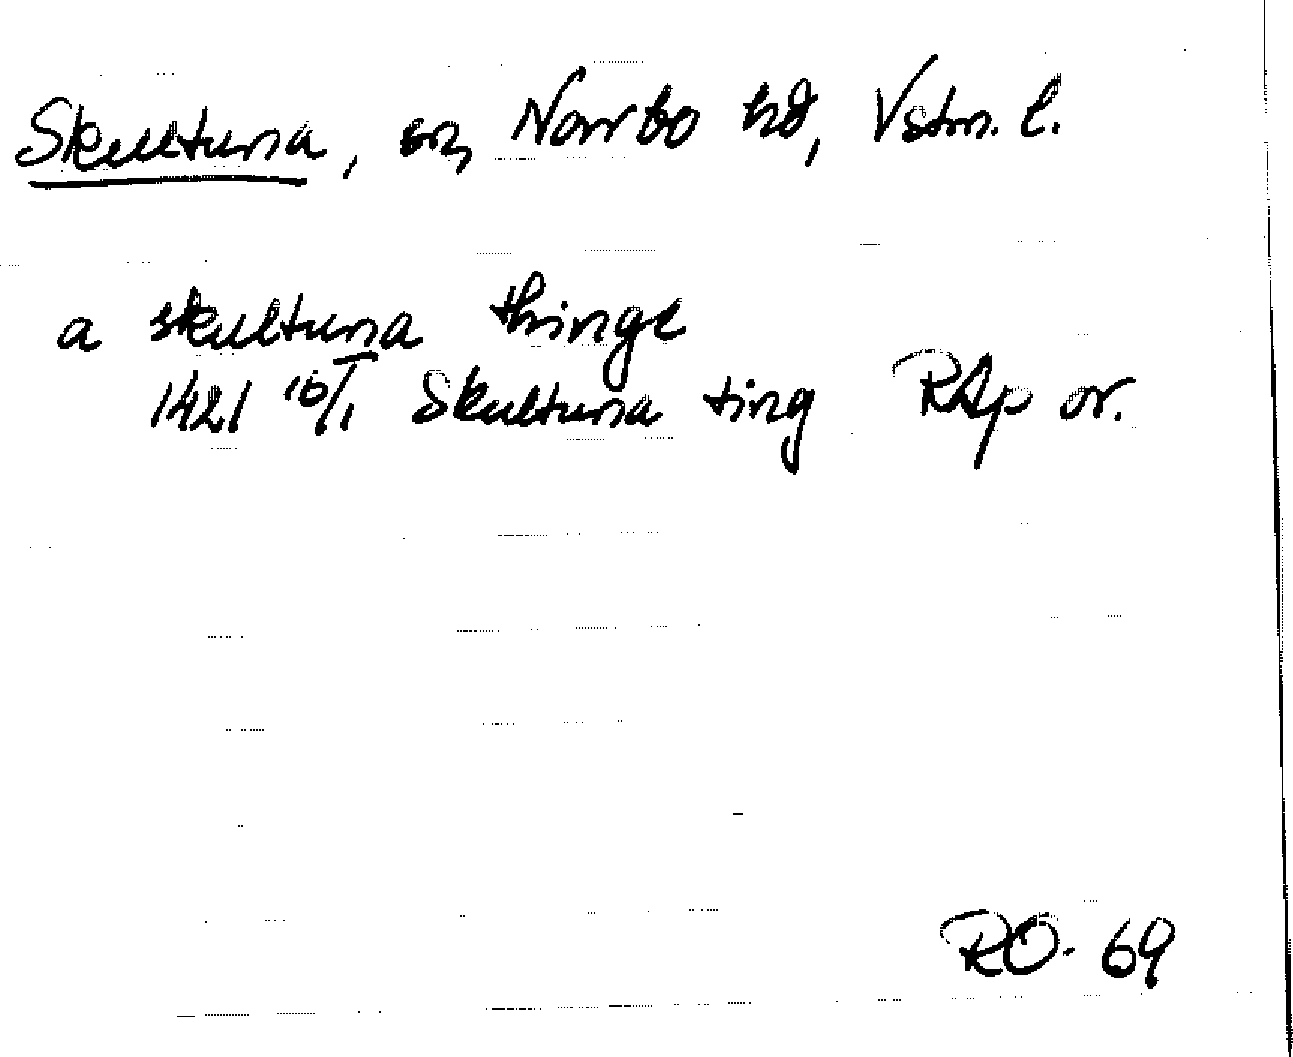 Skultuna, sn, Norrbo hd, Vstm. l.
a skultuna thinge
1421 16/1 Skultuna ting RAp or.
RO. 69